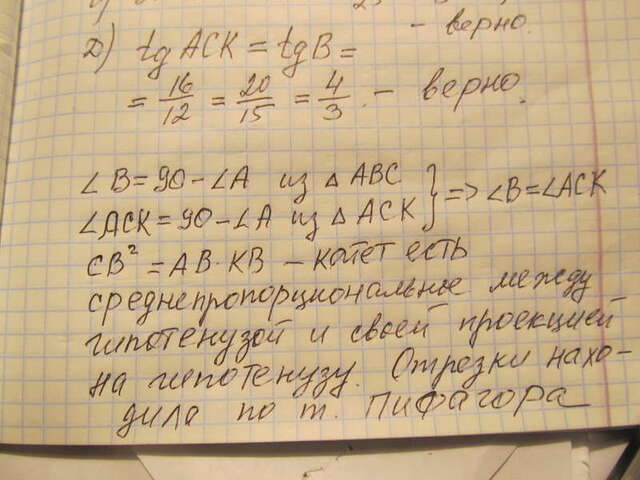 - верно.
Д) tg ACK = tg B =
= 16/12 = 20/15 = 4/3. - верно.
∠B = 90 - ∠A из △ABC
∠ACK = 90 - ∠A из △ACK } => ∠B = ∠ACK
CB² = AB·KB - катет есть
среднепропорциональное между
гипотенузой и своей проекцией
на гипотенузу. Отрезки нахо-
дила по т. Пифагора